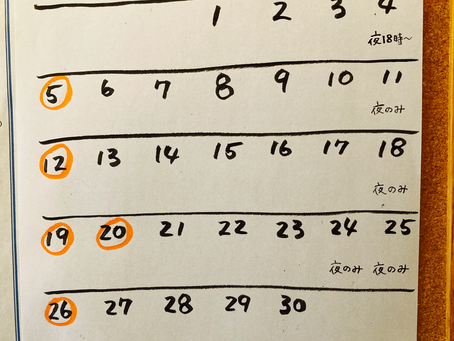 1 2 3 4
夜18時~
5 6 7 8 9 10 11
夜のみ
12 13 14 15 16 17 18
夜のみ
19 20 21 22 23 24 25
夜のみ 夜のみ
26 27 28 29 30